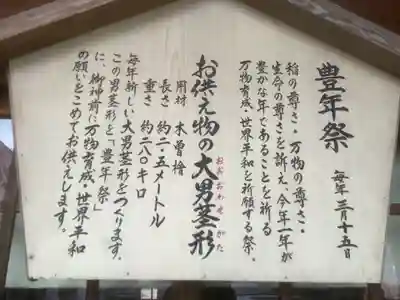 豊年祭
毎年 三月十五日
稲の尊さ・万物の尊さ・
生命の尊さを訴え、今年一年が
豊かな年であることを祈る
万物育成・世界平和を祈願する祭。
お供え物の大男茎形
おおおわせがた
用材 木曽檜
長さ 約二・五メートル
重さ 約二八〇キロ
毎年新しい大男茎形をつくります。
この男茎形を「豊年祭」
に、御神前に万物育成・世界平和
の願いをこめてお供えします。